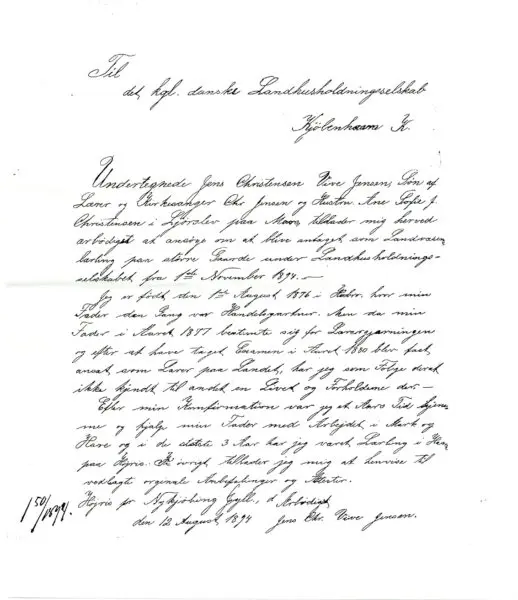 Til
det kgl. danske Landhusholdningsselskab
Kjöbenhavn K.
Undertegnede Jens Christensen Vive Jensen, Søn af
Lærer og Kirkesanger Chr. Jensen og Hustru Ane Sofie J.
Christensen i Ljörslev paa Mors, tillader mig herved
arbödigst at ansøge om at blive antaget som Landvæsens
lærling paa större Gaarde under Landhusholdnings-
selskabet fra 1ste November 1894.—
Jeg er född den 1ste August 1876 i hvor min
Fader den Gang var Handelsgartner. Men da min
Fader i Aaret 1877 bestemte sig for Lærergjerningen
og efter at have taget Examen i Aaret 1880 blev fast
ansat som Lærer paa Landet, har jeg som Følge deraf
ikke kjendt til andet en Livet og Forholdene der.—
Efter min Konfirmation var jeg et Aars Tid hjem-
me og hjalp min Fader med Arbejdet i Mark og
Have og i de sidste 3 Aar har jeg været Lærling i
paa Højris. I övrigt tillader jeg mig at henvise til
vedlagte orginale Anbefalinger og Attester.
Højris pr Nykjöbing d. Arbödigst
den 12 August 1894 Jens Chr. Vive Jensen.
150/1894.